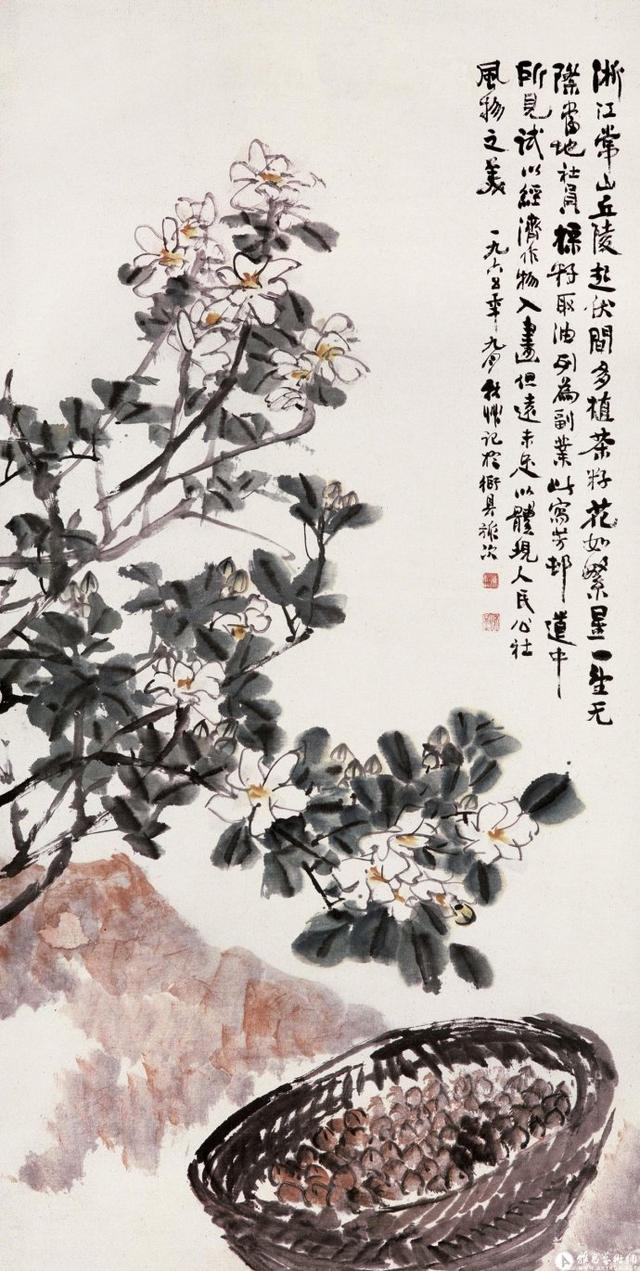 浙江常山丘陵起伏間多植茶籽花如繁星一望无
際當地社員採籽取油列為副業此寫芳邨道中
所見試以經濟作物入畫但遠未足以體現人民公社
風物之美 一九六五年九月 記於衢縣旅次